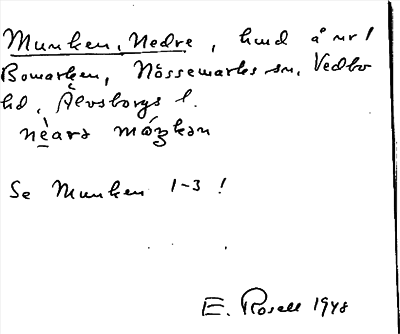 Munken, Nedre, hmd å nr 1
Bowarken, Nössemarks sn, Vedbo
hd, Älvsborgs l.
nèara máŋkən
Se Munken 1-3!
E. Rosell 1948